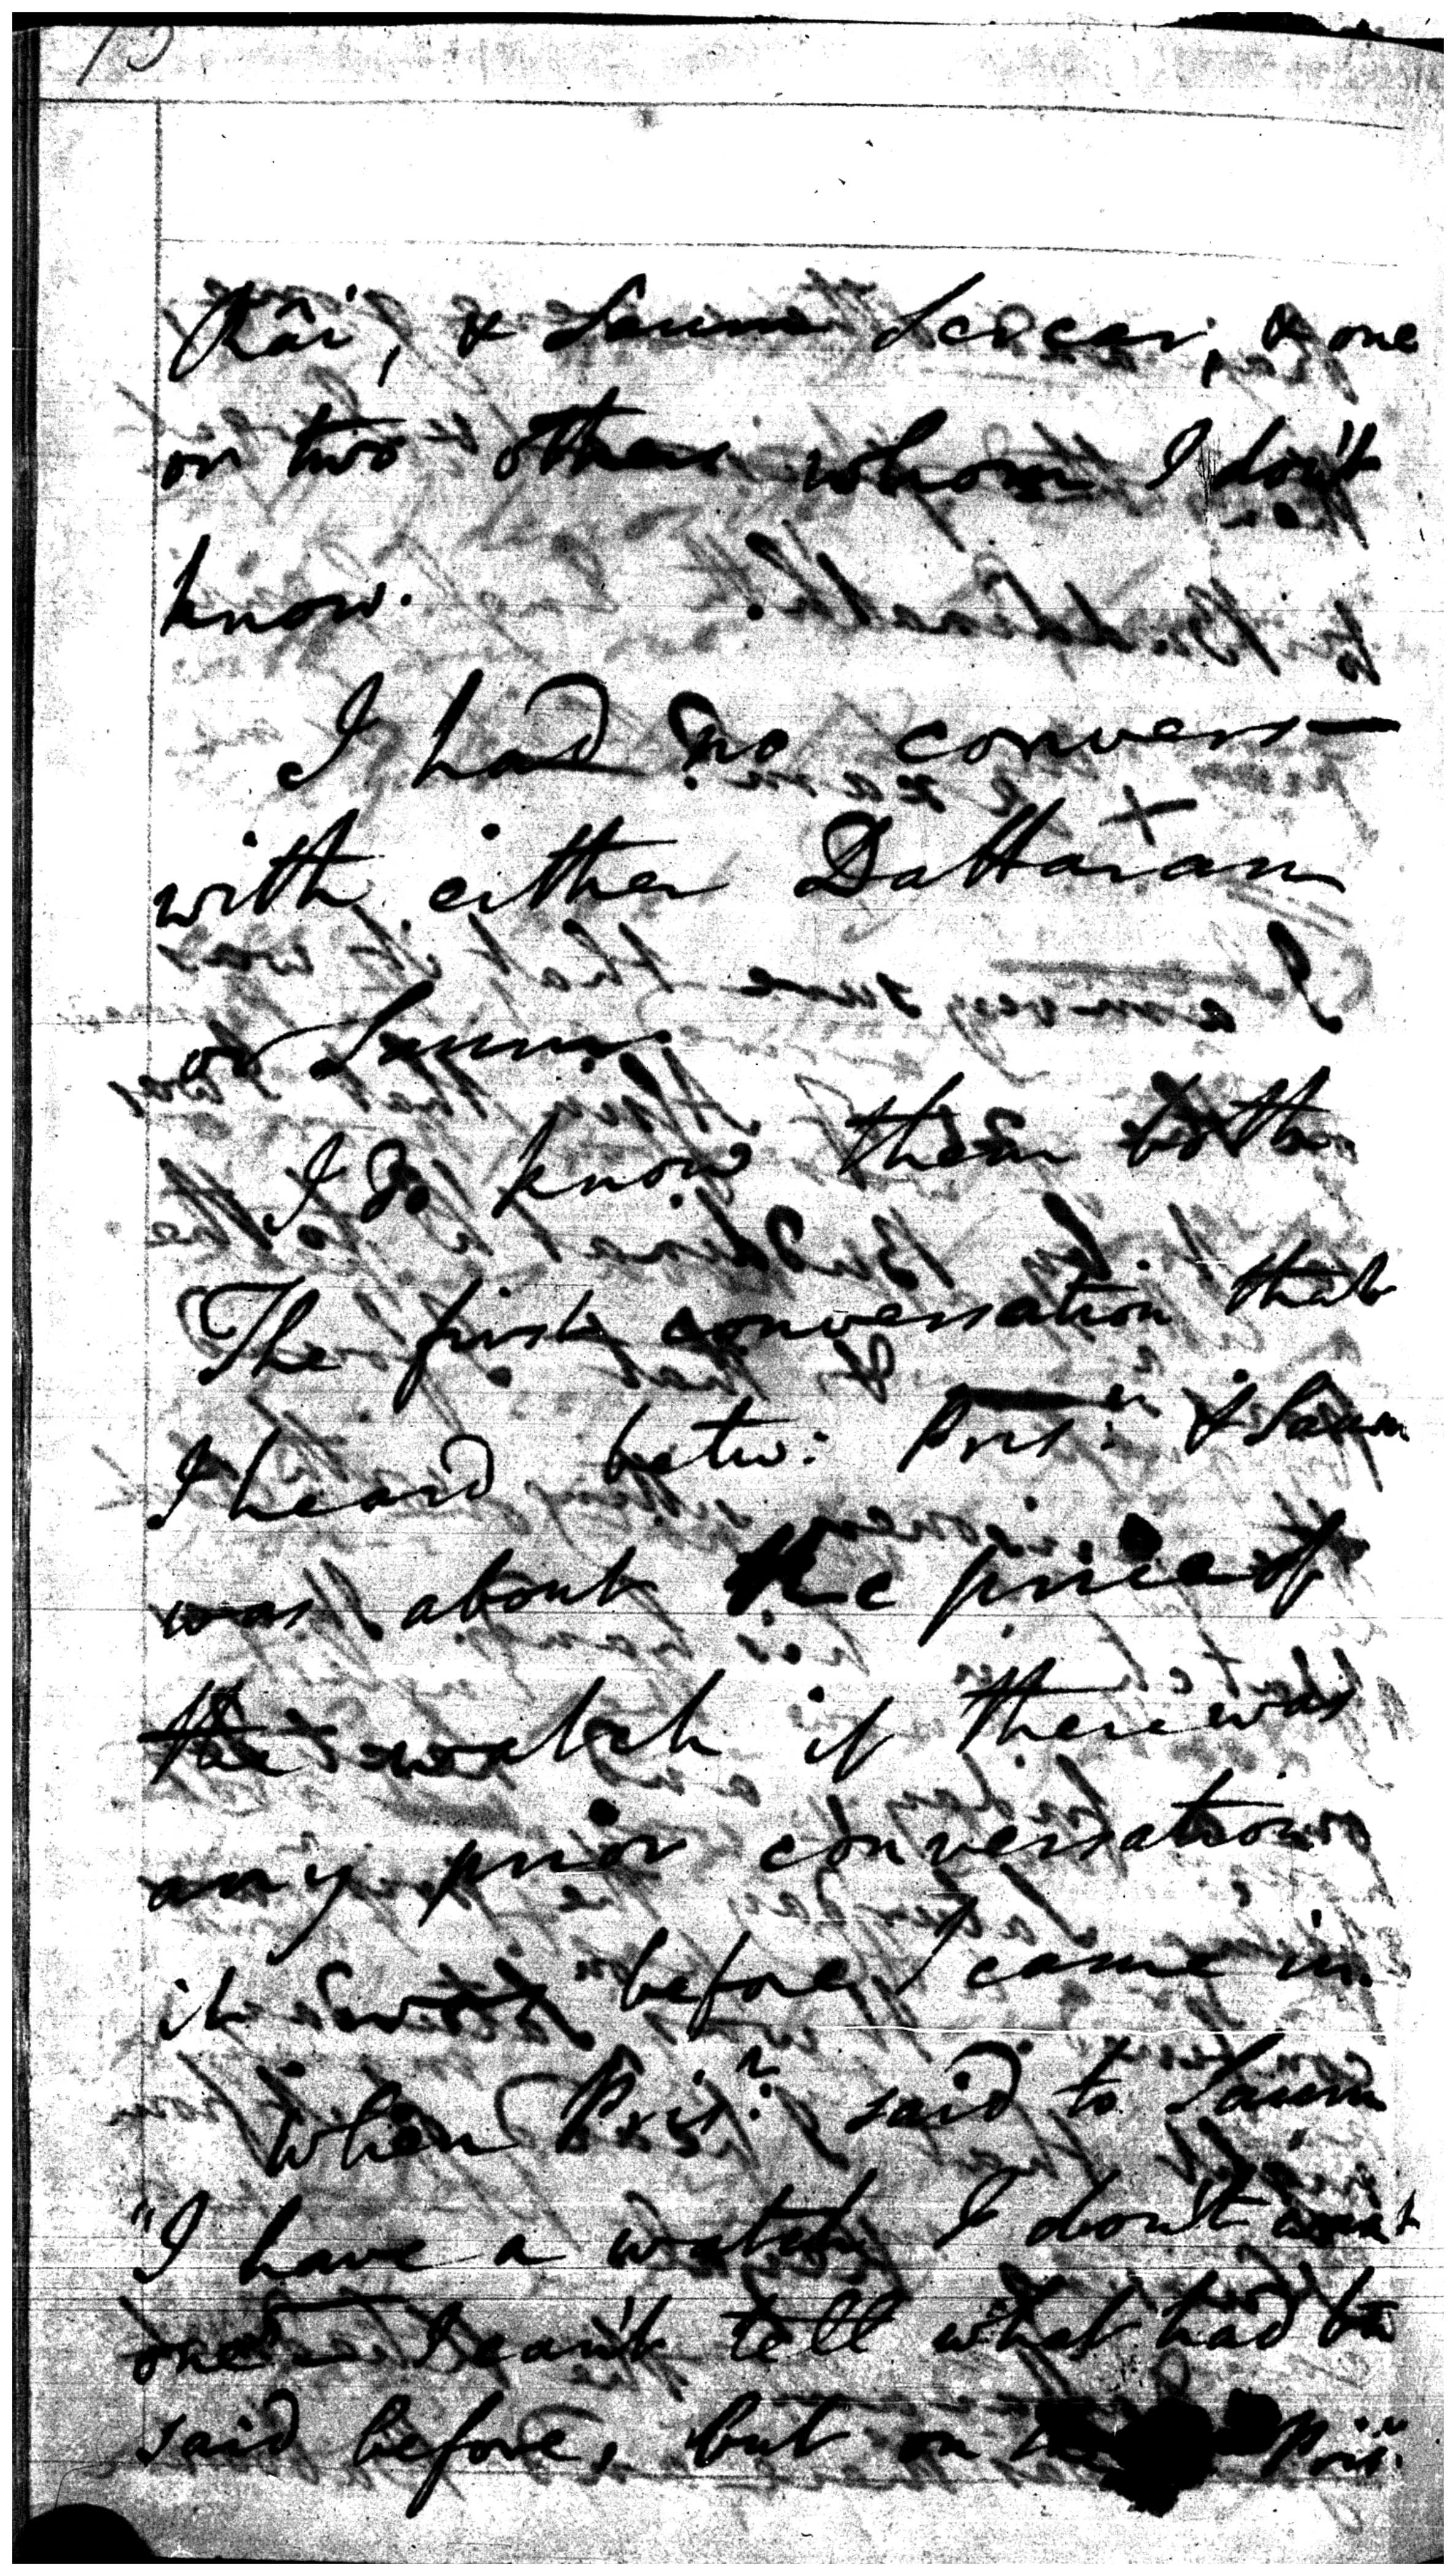 Râi, & Saum Sircar, & one
or two others whom I don't
know.
I had no convers—
with either Dattaram
or Saum.
I do know them both
The first conversation that
I heard betw: Prisr & Saum
was about the price of
the watch if there was
any prior conversation
it was before I came in.
When Prisr said to Saum
"I have a watch I don't want
one" I can't tell what had bn
said before, but on Prisr